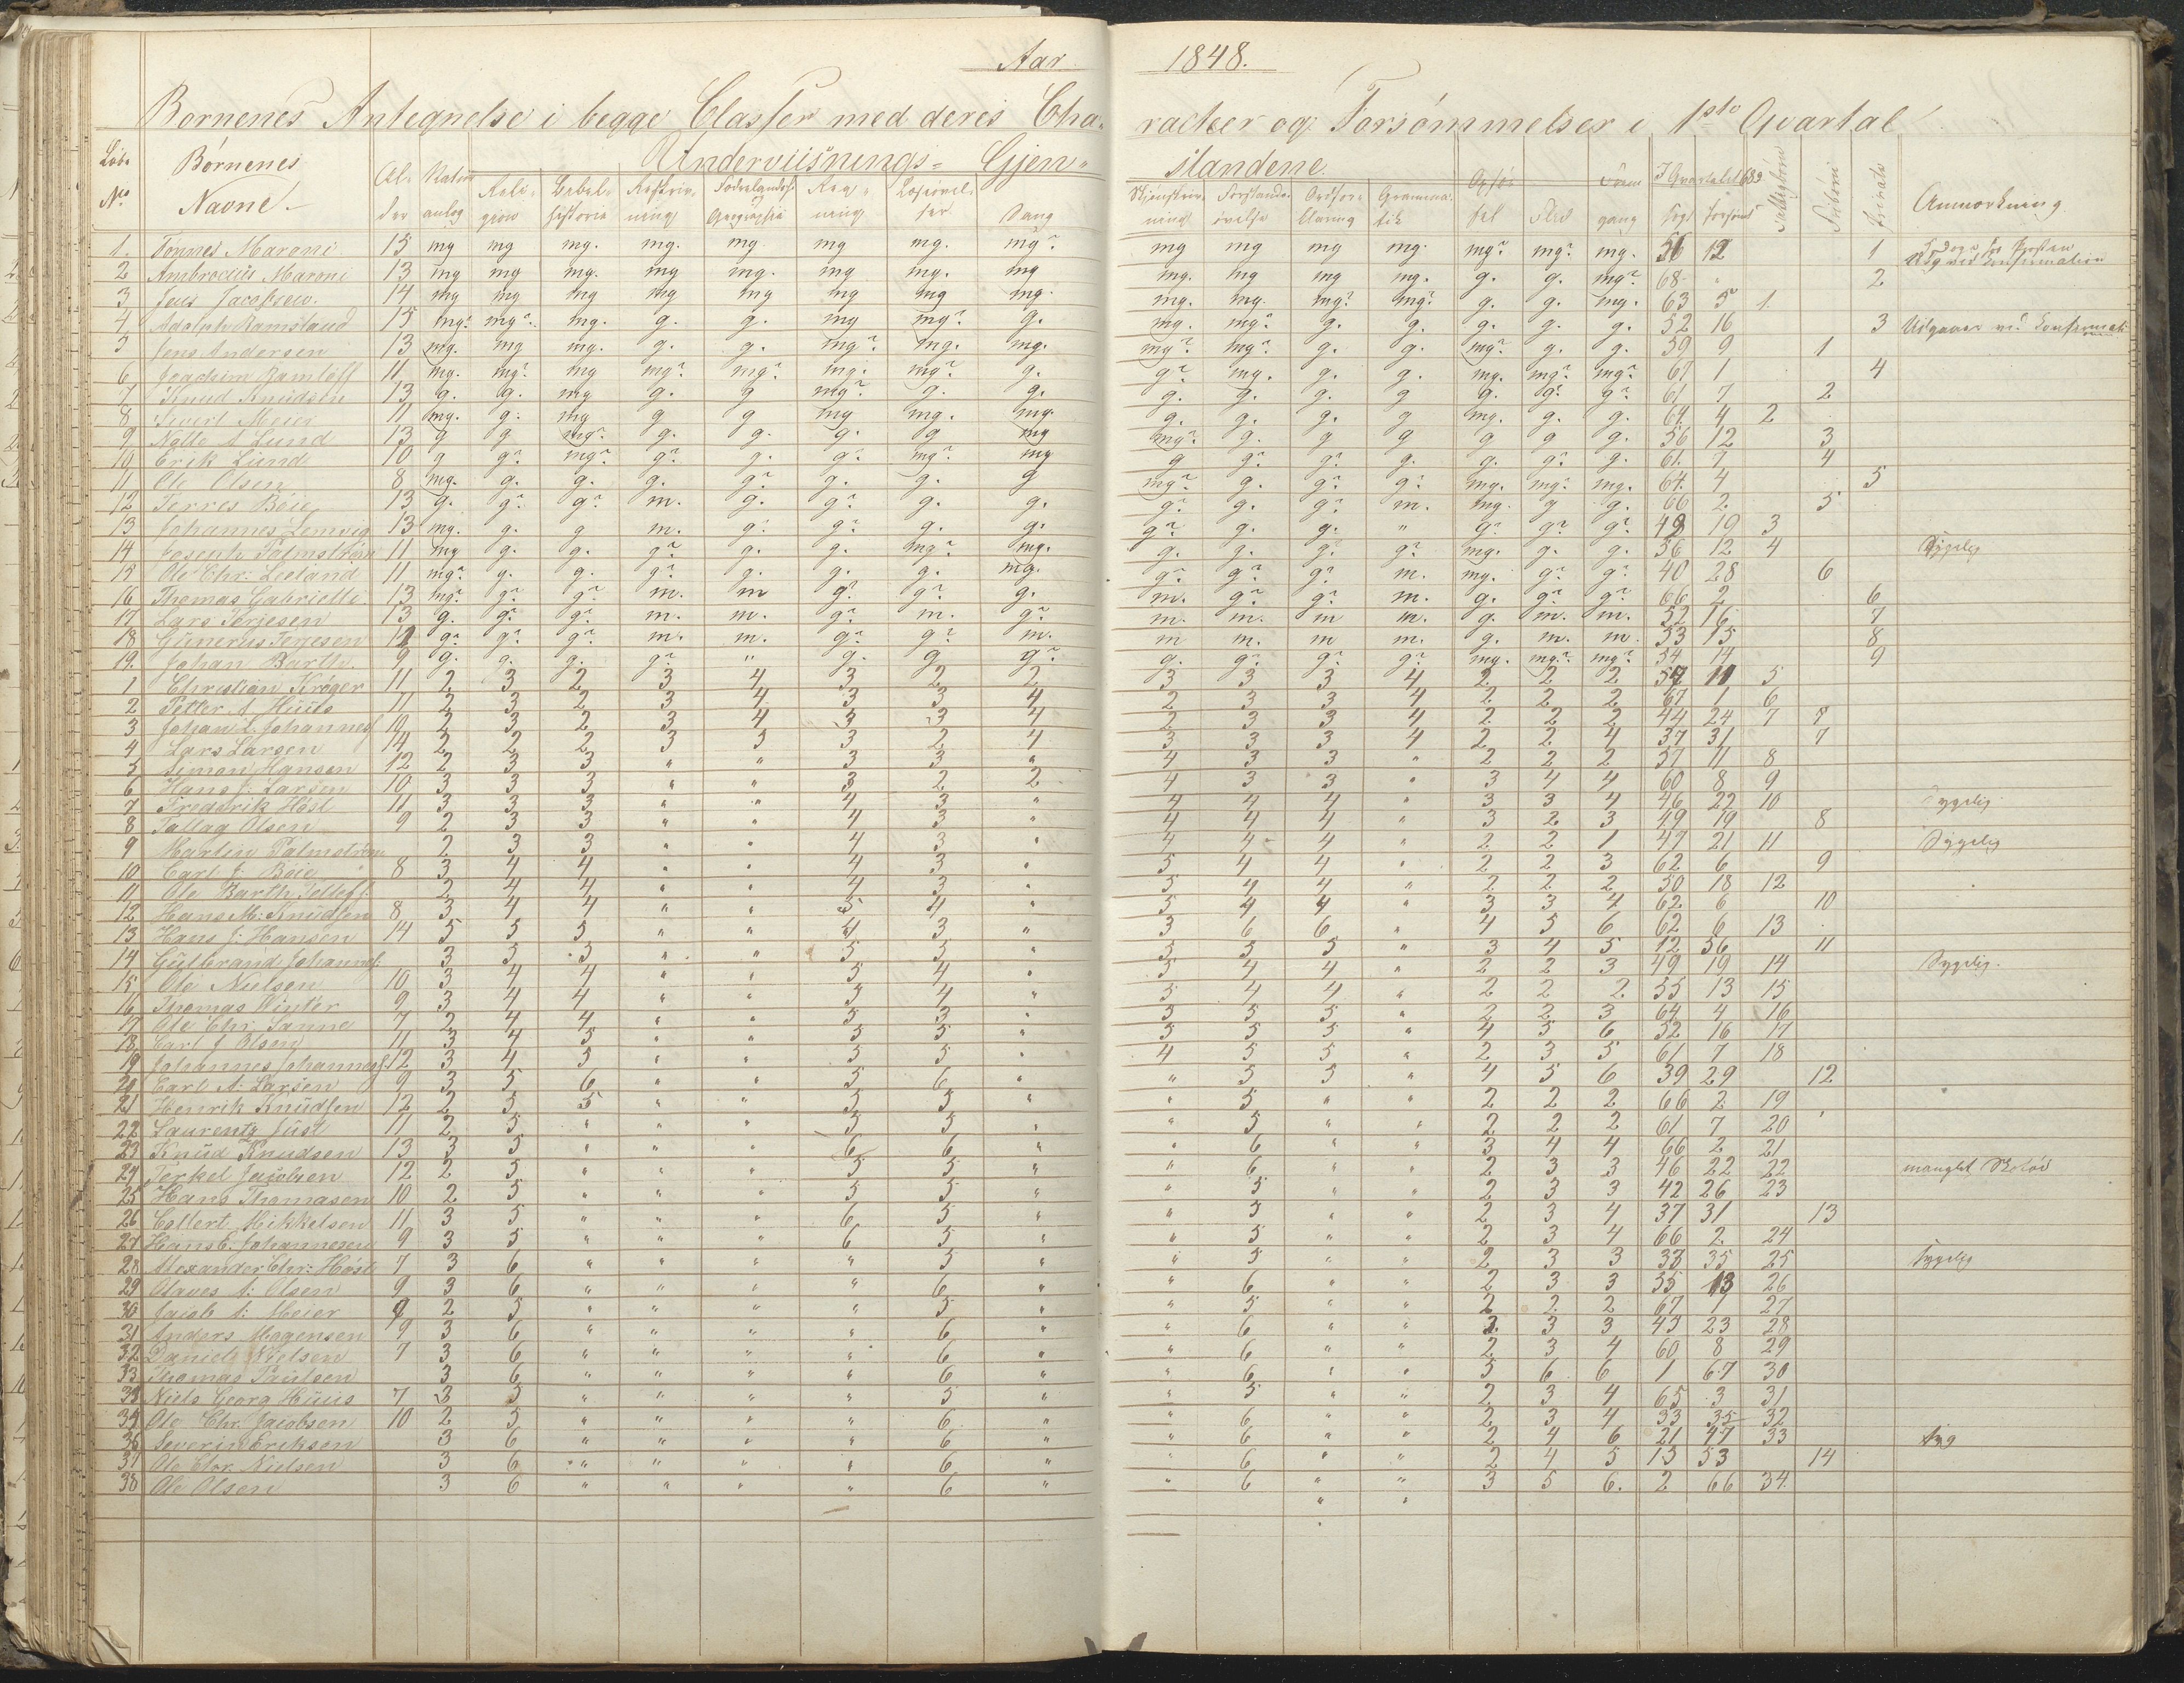 Aar 1848.
Børnenes Antegnelse i begge Classer med deres Cha- racteer og Forsømmelser i 1ste Qvartal
Løbe No Børnenes Navne Al- der Natur anlæg Underviisnings- Gjen- standene I Qvartalet 68 Anmærkning
Reli- gion Bibel- historie Retskriv- ning Fædrelandsh. Geographie Reg- ning Læseøvel- ser Sang Skjønskriv- ning Forstands- øvelse Ordfor- klaring Gramma- tik Op- sel Flid gang Søgt Forsømt Fribørn Private
1. Tønnes Maroni 15 mg mg mg. mg. mg mg mg. mg? mg mg mg mg. mg? mg? mg. 56 12 1
2 Ambrosius Maroni 13 mg mg mg. mg mg. mg mg. mg mg. mg mg mg. g. g. mg? 68 " 2
3 Jens Jacobsen. 14 mg mg mg mg mg mg mg mg. mg. mg. mg? mg? g. g. mg. 63 5 1
4 Adolph Ramsland 15 mg? mg? mg. g. g. mg mg? g. mg. mg? g. g. g. g. g. 52 16 3 Udgaaer ved Confirmat:
5 Jens Andersen 13 mg. mg mg. g. g. mg? mg. mg. mg? mg? g. g. mg? g. g. 59 9 1
6 Joachim Ramlöff 11 mg. mg? mg mg? mg? mg. mg? g. g? mg. g. g. mg. mg? mg? 67 1 4
7 Knud Knudsen 13 g. g. mg g. g mg? g. g. g. g. g. g g. g? g? 61 7 2
8 Sivert Meier 11 mg. g. mg g g mg mg. mg. g. g. g. g mg. g. g. 64 4 2
9 Nolle A Lund 13 g g mg? g. g. g. g mg mg? g. g g g g g. 56 12 3
10 Erik Lund 10 g g? mg? g? g. g? mg? mg g g? g? g. g. g? g. 61 7 4
11 Ole Olsen 8 mg. g. g. g. g? g. g. g mg? g. g? g? mg. mg? mg. 64 4 5
12 Terres Böie 13 g. g? g? m. g. g? g. g. g? g. g? m. mg. g g. 66 2 5
13 Johannes Lemvig 13 mg. g. g m. g? g? g. g. g? g. g. " g? g? g? 49 19 3
14 Joseph Palmstrøm 11 mg g. g. g? g. g. mg? mg. g. g. g? g? mg. g. g. 56 12 4 Sygelig
15 Ole Chr: Leeland 11 mg? g. g. g? g. g. g. mg. g? g? g? m. mg. g? g? 40 28 6
16 Thomas Gabrielli 13 mg? g? g? m. m g? g? g. m. g? g? m. g. g? g? 66 2 6
17 Lars Terjesen 13 g. g? g? m. m. g? m. g? m. m. m m. g. m. m. 52 16 7
18 Gunerius Terjesen 12 g? g? g? m. m. g? g? m. m m. m m. g. m. m. 53 15 8
19. Johan Barth. 9 g. g. g. g? " g. g g? g. g? g? g? mg. mg? mg? 54 14 9
1 Christian Kröger 11 2 3 2 3 4 3 2 2 3 3 3 4 2 2 2 57 11 5
2 Petter A Huus 11 2 3 2 3 4 3 3 4 2 3 3 4 2 2 2 67 1 6
3 Johan L. Johannes 10 2 3 2 3 4 3 3 4 2 3 3 4 2 2 2 44 24 7
4 Lars Larsen 14 2 2 2 3 3 3 2 4 3 3 3 4 2 2 4 37 31 7
5 Simon Hansen 12 2 3 3 " " 3 3 " 4 3 3 " 2 2 2 57 11 8
6 Hans J: Larsen 10 3 3 3 " " 3 2 2 4 3 3 " 3 4 4 60 8 9
7 Frederik Höst 11 3 3 3 " " 4 3 " 4 4 4 " 3 3 4 46 22 10 Sygelig
8 Tallag Olsen 9 2 3 3 " " 4 3 " 4 4 4 " 3 2 3 49 19 8
9 Martin Palmstrøm 2 3 3 " " 4 3 " 4 4 4 " 2 2 1 47 21 11 Sygelig
10 Carl J: Böie 8 3 4 4 " " 4 3 " 5 4 4 " 2 2 3 62 6 9
11 Ole Barth Tellefs: 2 4 4 " " 4 3 " 5 4 4 " 2 2 2 50 18 12
12 Hans M: Knudsen 8 3 4 4 " " 5 4 " 5 4 4 " 3 3 4 62 6 10
13 Hans J: Hansen 14 5 5 5 " " 4 3 " 3 6 6 " 4 5 6 62 6 13
14 Gulbrand Johannes: 3 5 3 " " 5 5 " 5 5 5 " 3 4 5 12 56 11
15 Ole Nielsen 10 3 4 4 " " 5 4 " 5 4 4 " 2 2 3 49 19 14 Sygelig.
16 Thomas Winter 9 3 4 4 " " 5 4 " 5 4 4 " 2 2 2 55 13 15
17 Ole Chr. Sanne 7 2 4 4 " " 5 3 " 5 5 5 " 2 2 3 64 4 16
18 Carl J Olsen 11 3 4 5 " " 5 5 " 5 5 5 " 4 5 6 52 16 17
19 Johannes Johannes: 12 3 4 5 " " 5 5 " 4 5 5 " 2 3 5 61 7 18
20 Carl A: Larsen 9 3 5 6 " " 5 6 " " 5 5 " 4 5 6 39 29 12
21 Henrik Knudsen 12 2 5 5 " " 5 5 " " 5 " " 2 2 2 66 2 19
22 Laurentz Just 11 2 5 " " " 5 5 " " 5 " " 2 2 2 61 7 20
23 Knud Knudsen 13 3 5 " " " 6 6 " " 6 " " 3 4 4 66 2 21
24 Terkel Jacobsen 12 2 5 " " " 5 5 " " 6 " " 2 3 3 46 22 22 manglet Skotøi
25 Hans Thomasen 10 2 5 " " " 5 5 " " 5 " " 2 3 3 42 26 23
26 Collert Mikkelsen 11 3 5 " " " 6 5 " " 5 " " 2 3 4 37 31 13
27 Hans E. Johannesen 9 3 5 " " " 6 5 " " 5 " " 2 3 4 66 2 24
28 Alexander Chr: Höst 7 3 6 " " " " 5 " " 5 " " 2 3 3 33 35 25 Sygelig
29 Olaves A: Olsen 9 3 6 " " " " 6 " " 6 " " 2 3 3 55 13 26
30 Jacob A: Meier 9 2 5 " " " " 5 " " 5 " " 2 2 2 67 1 27
31 Anders Mogensen 9 3 6 " " " " 6 " " 6 " " 2 3 3 45 23 28
32 Daniel Nielsen 7 3 6 " " " " 6 " " 6 " " 2 3 4 60 8 29
33 Thomas Paulsen 3 6 " " " " 6 " " 6 " " 5 6 6 1 67 30
34 Niels Georg Huus 7 3 5 " " " " 5 " " 5 " " 2 3 4 65 3 31
35 Ole Chr. Jacobsen 10 2 5 " " " " 6 " " 6 " " 2 3 4 33 35 32
36 Severin Eriksen 3 6 " " " " 6 " " 6 " " 2 4 6 21 47 33 syg
37 Ole Chr. Nielsen 3 6 " " " " 6 " " 6 " " 2 4 5 15 53 14
38 Ole Olsen 3 6 " " " " 6 " " 6 " " 3 5 6. 2 66 34.